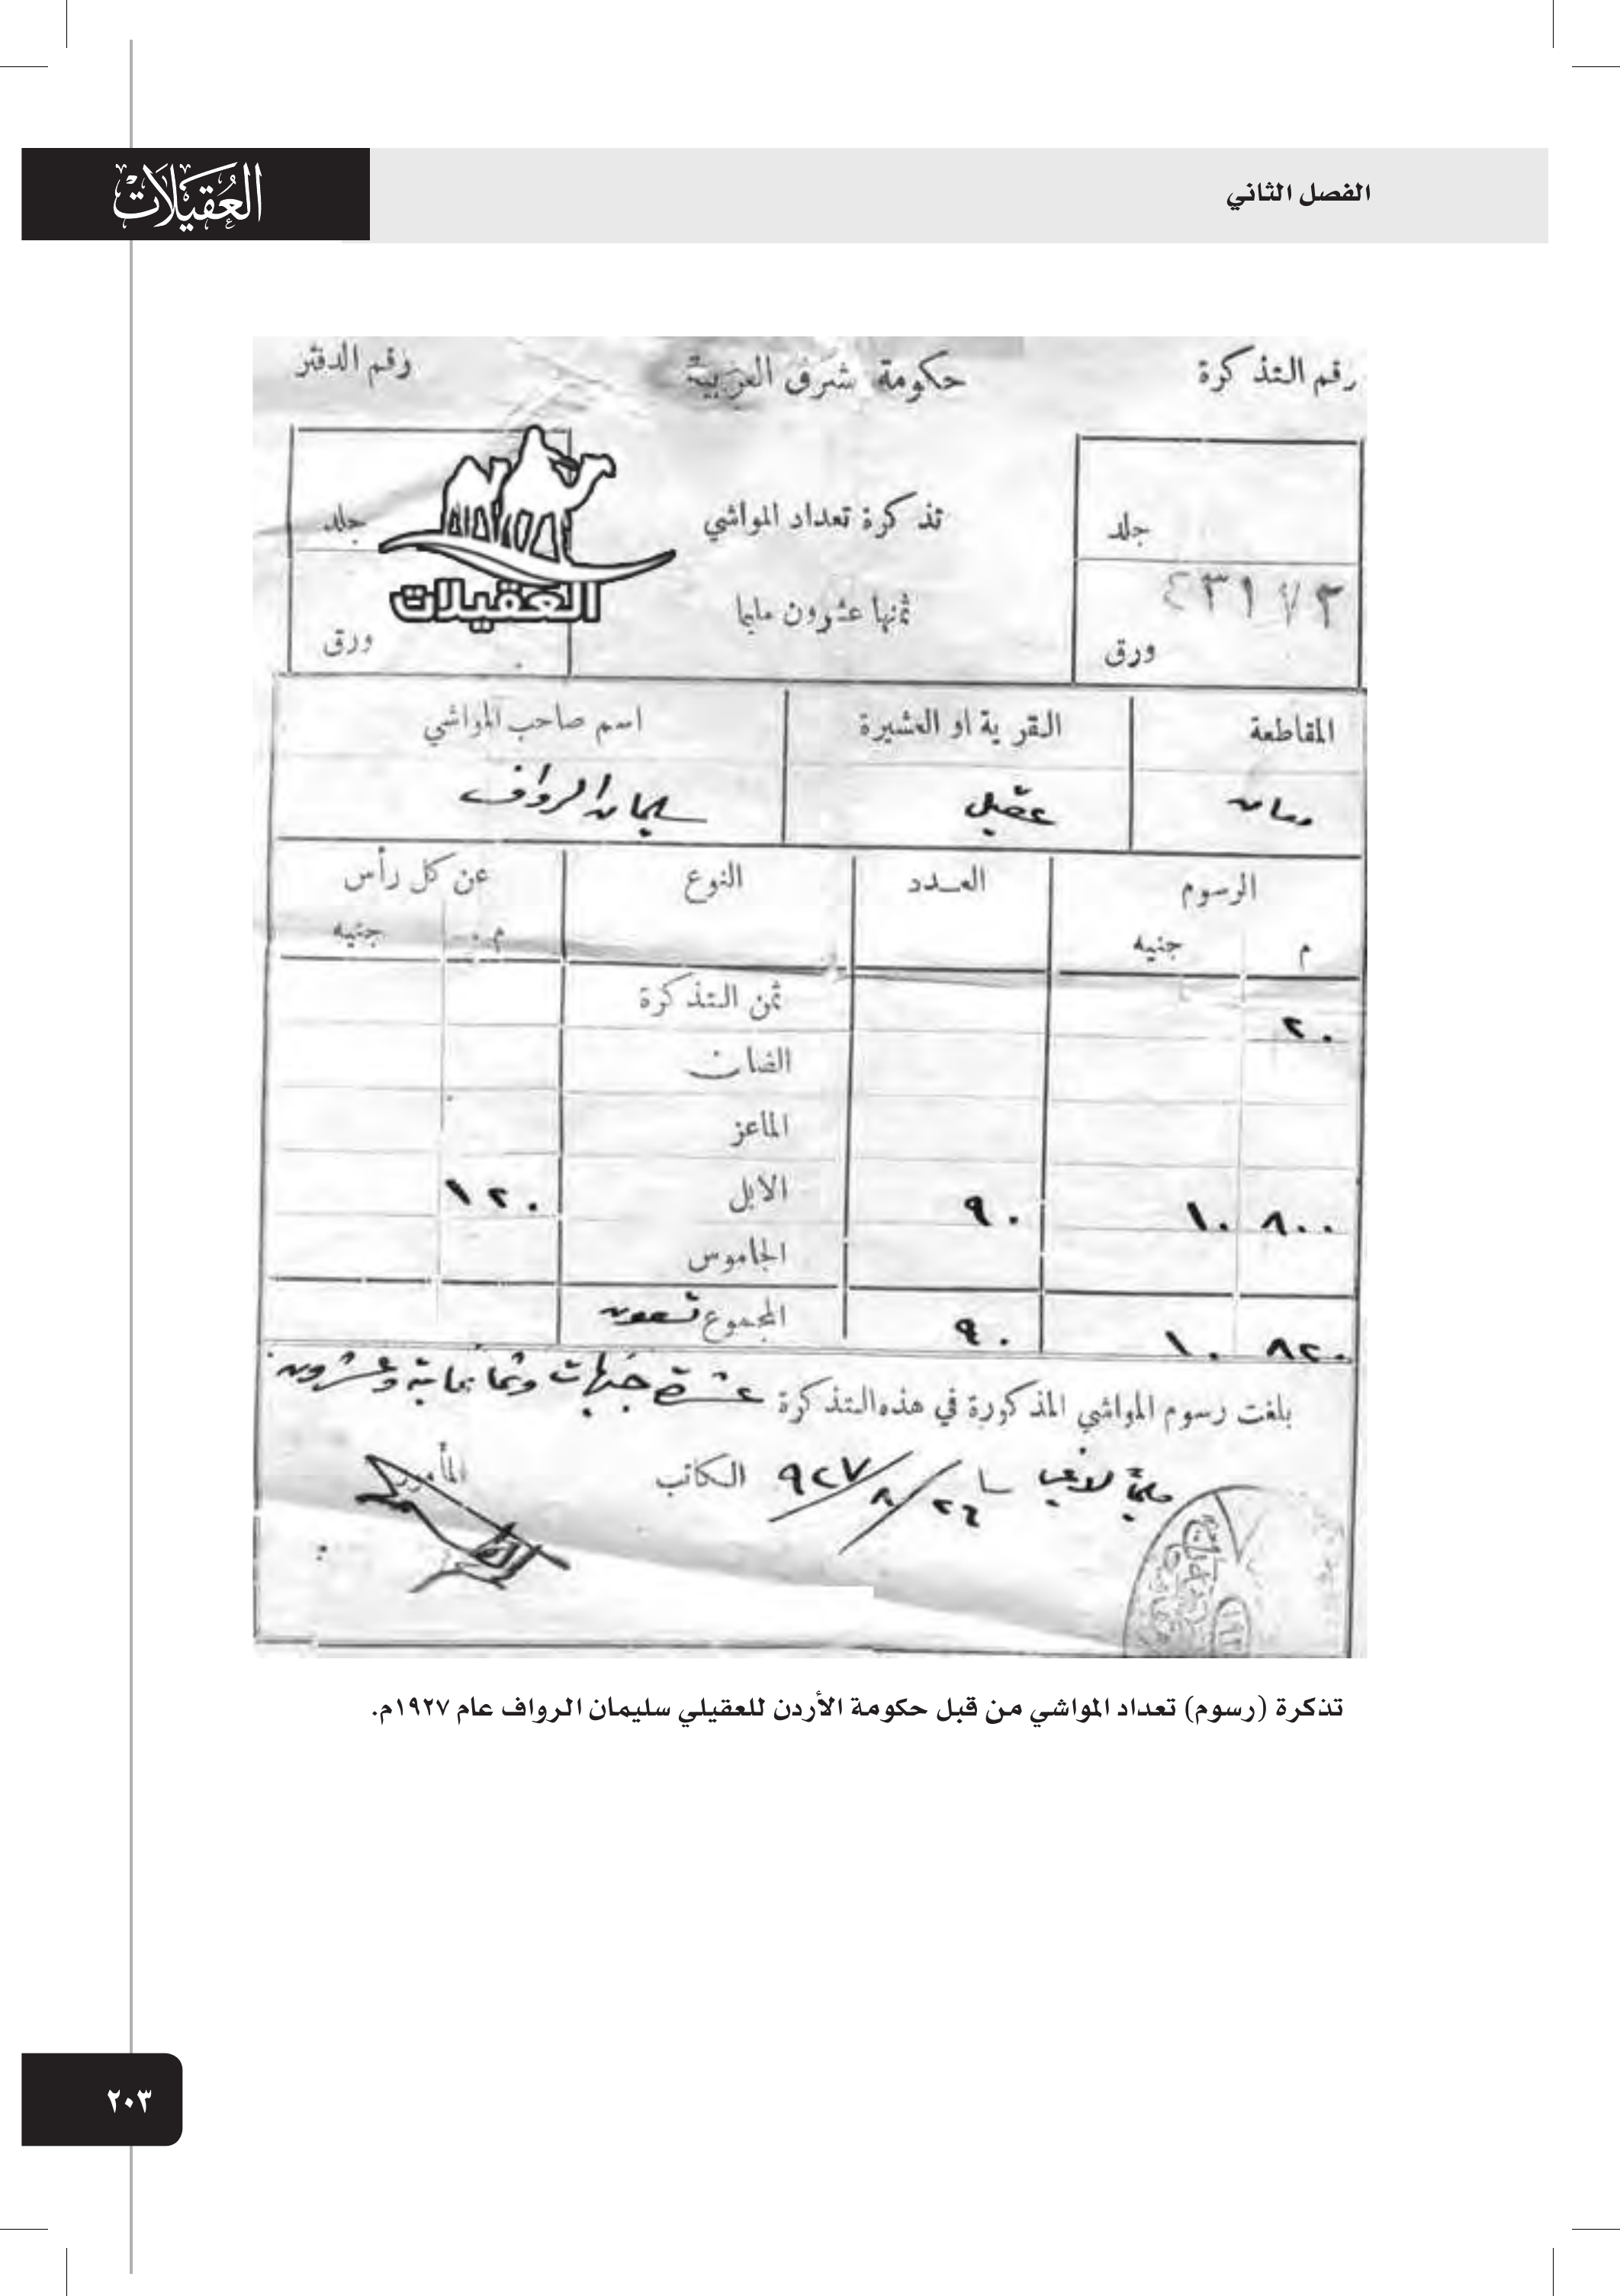 الفصل الثاني
العُقَيلَات
رقم التذكرة
حكومة شرق العربية
رقم الدفتر
جلد
تذكرة تعداد المواشي
جلد
العقيلات
ثمنها عشرون مليما
ورق
ورق
المقاطعة
القرية او العشيرة
اسم صاحب المواشي
معان
عقيل
سليمان الرواف
الرسوم
العدد
النوع
عن كل رأس
م
جنيه
م.
جنيه
٢٠
ثمن التذكرة
الضان
الماعز
٨٠٠
١٠
٩٠
الابل
١٢٠
الجاموس
٨٢٠
١٠
٩٠
المجموع تسعون
بلغت رسوم المواشي المذكورة في هذه التذكرة عشرة جنيهات وثمانماية وعشرون
مليما لاغير
٢٦/٨/٩٢٧
الكاتب
المأمور
تذكرة (رسوم) تعداد المواشي من قبل حكومة الأردن للعقيلي سليمان الرواف عام ١٩٢٧م.
٢٠٣